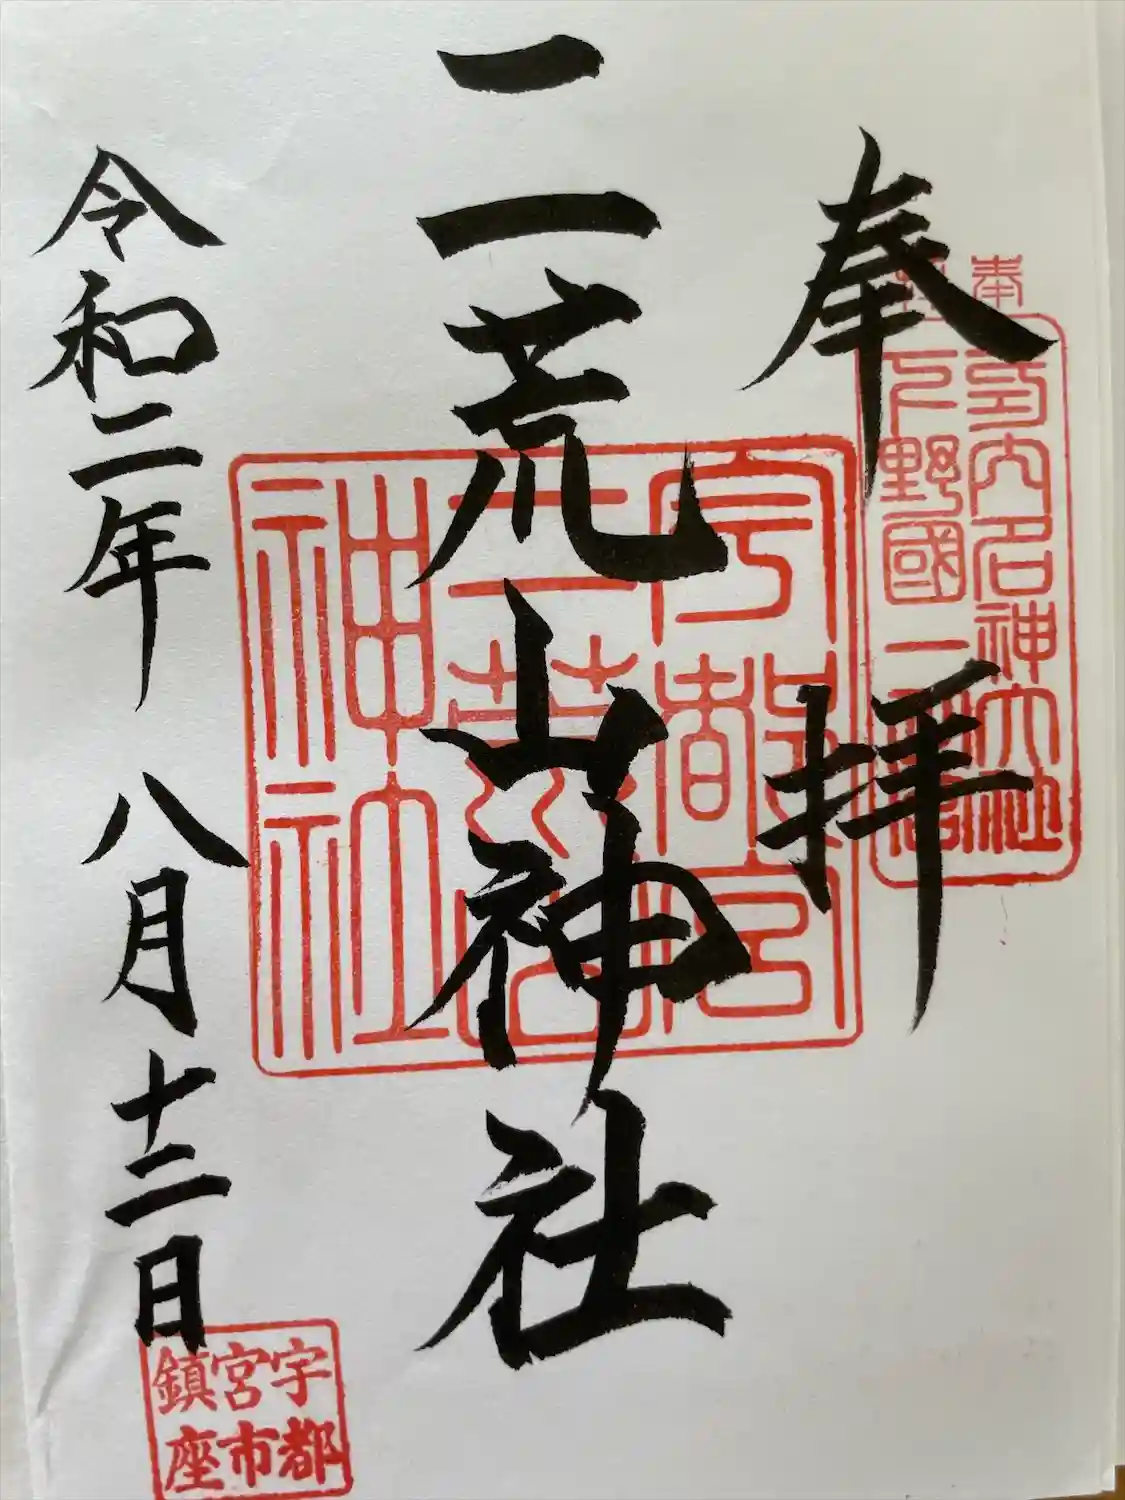 奉拝
奉拝
名神大社
下野國一
二荒山神社
宇都宮
二荒山
神社
令和二年 八月十二日
宇都
宮市
鎮座